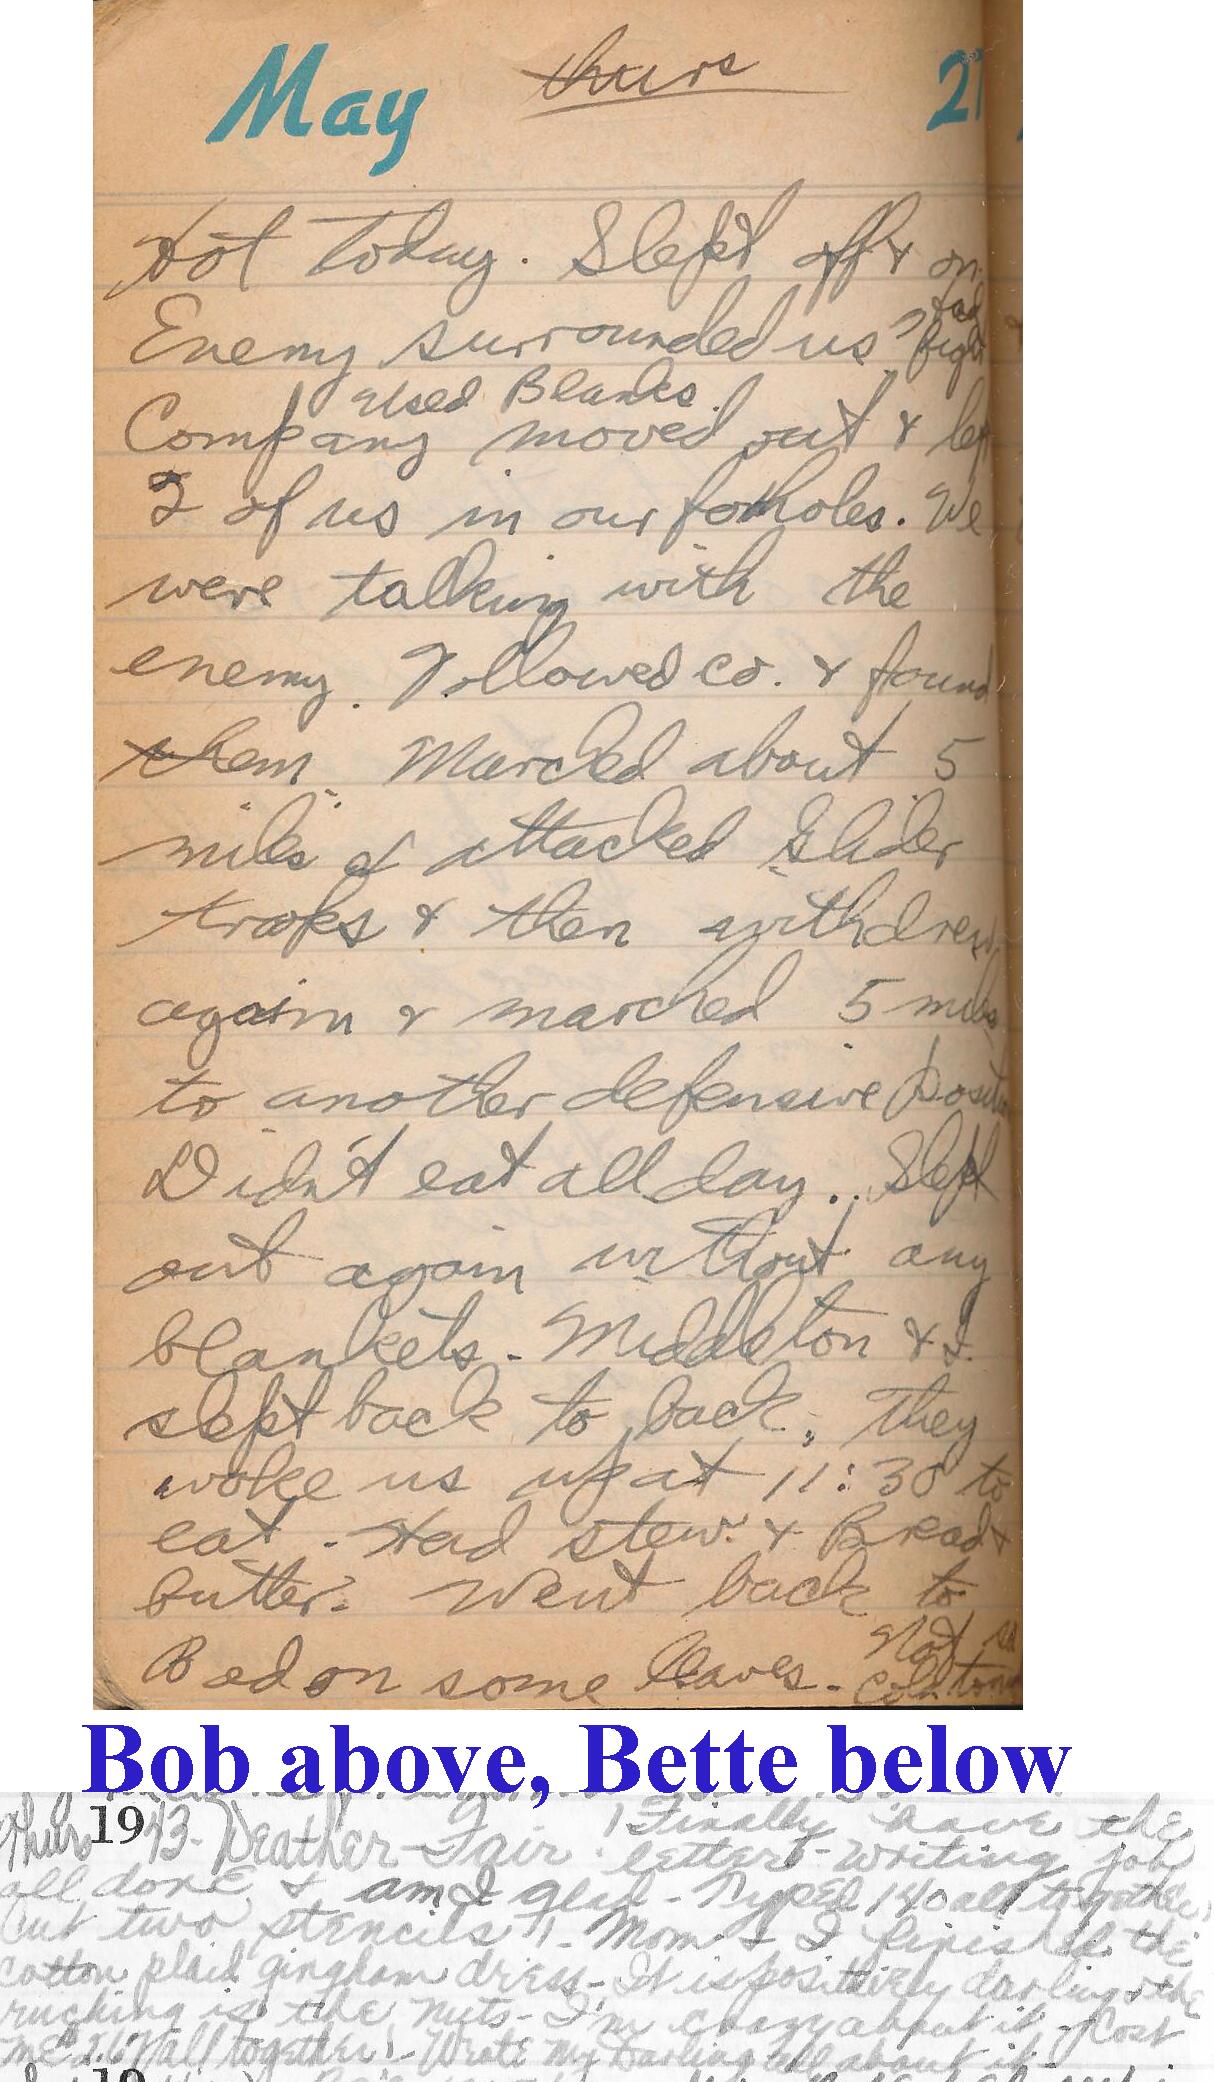 May thurs 27
Hot Today. Slept off & on.
Enemy surrounded us had
Used Blanks.
Company moved out & left
2 of us in our foxholes. We
were talking with the
enemy. Followed co. & found
them. Marched about 5
miles & attacked Glider
troops & then withdrew
again & marched 5 miles
to another defensive
Didn't eat all day. Slept
out again without any
blankets. Middleton & I
slept back to back, they
woke us up at 11:30 to
eat. Had stew & Bread &
butter. Went back to
Bed on some leaves. Not so
cold
Bob above, Bette below
Thurs 1943 - Weather - Fair. Finally have the
letter-writing job
all done & am I glad - Typed 140 all together,
Cut two stencils - Mom & I finished the
cotton plaid gingham dress - It is positively darling & the
ruching is the nuts - I'm crazy about it - Cost
me all together! Wrote my Darling all about it -
19